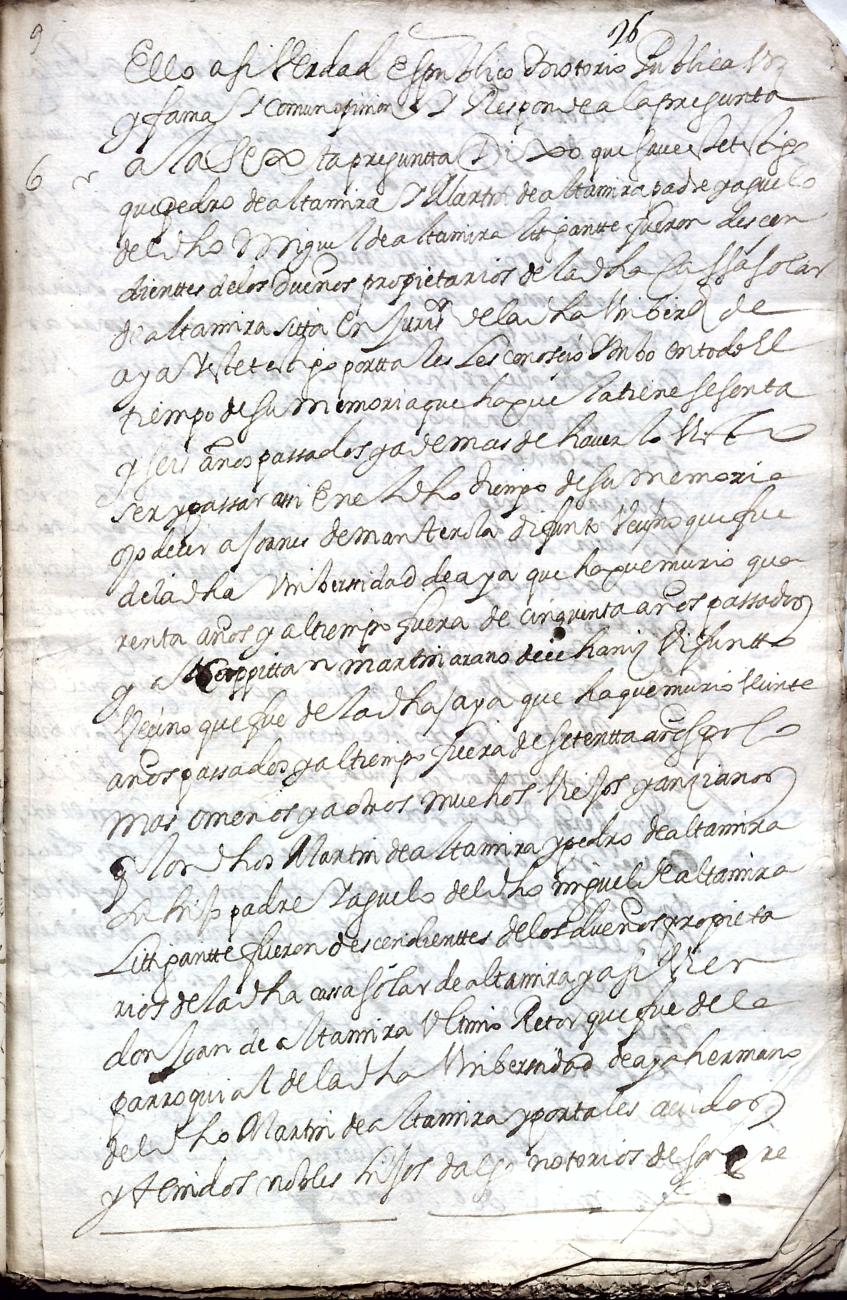 9
26
Ello asi Verdad Es publico Y notorio Publica Voz
y fama Y Comun opinion Y Responde a la pregunta
6
a la Sexta preguntta Dixo que save este testigo
que pedro de altamira Y Martin de altamira padre y aguelo
del dho Miguel de altamira litigantte fueron descen
dienttes de los Dueños propietarios de la dha Cassa solar
de altamira sitta En Juris.on de la dha Vniberd de
aya Y este testigo por tales Les Conoscio Y vbo en todo El
tiempo de su memoria que ha que la tiene sesenta
y seis años passados y ademas de haver lo Visto
ser y passar assi En el dho tiempo de su memoria
oyo decir a Joanes de manterola difunto Vecino que fue
de la dha Vnibersidad de aya que ha que murio qua
renta años y al tiempo fuera de cinquenta años passados
y al Cappittan martin arano de echaniz Difuntto
Vecino que fue de la dha aya que ha que murio Veinte
años passados y al tiempo fuera de setentta años poco
mas o menos y a otros muchos Viejos y anzianos
q los dhos Martin de altamira y pedro de altamira
su hijo padre Y aguelo del dho miguel de altamira
Littigantte fueron descendienttes de los dueños propieta
rios de la dha cassa solar de altamira y asi Vien
don Joan de altamira Vltimo Retor que fue de la
parroquial de la dha Vnibersidad de aya hermano
del dho Martin de altamira y por tales avidos
y tenidos nobles hijos dalgo notorios de sangre